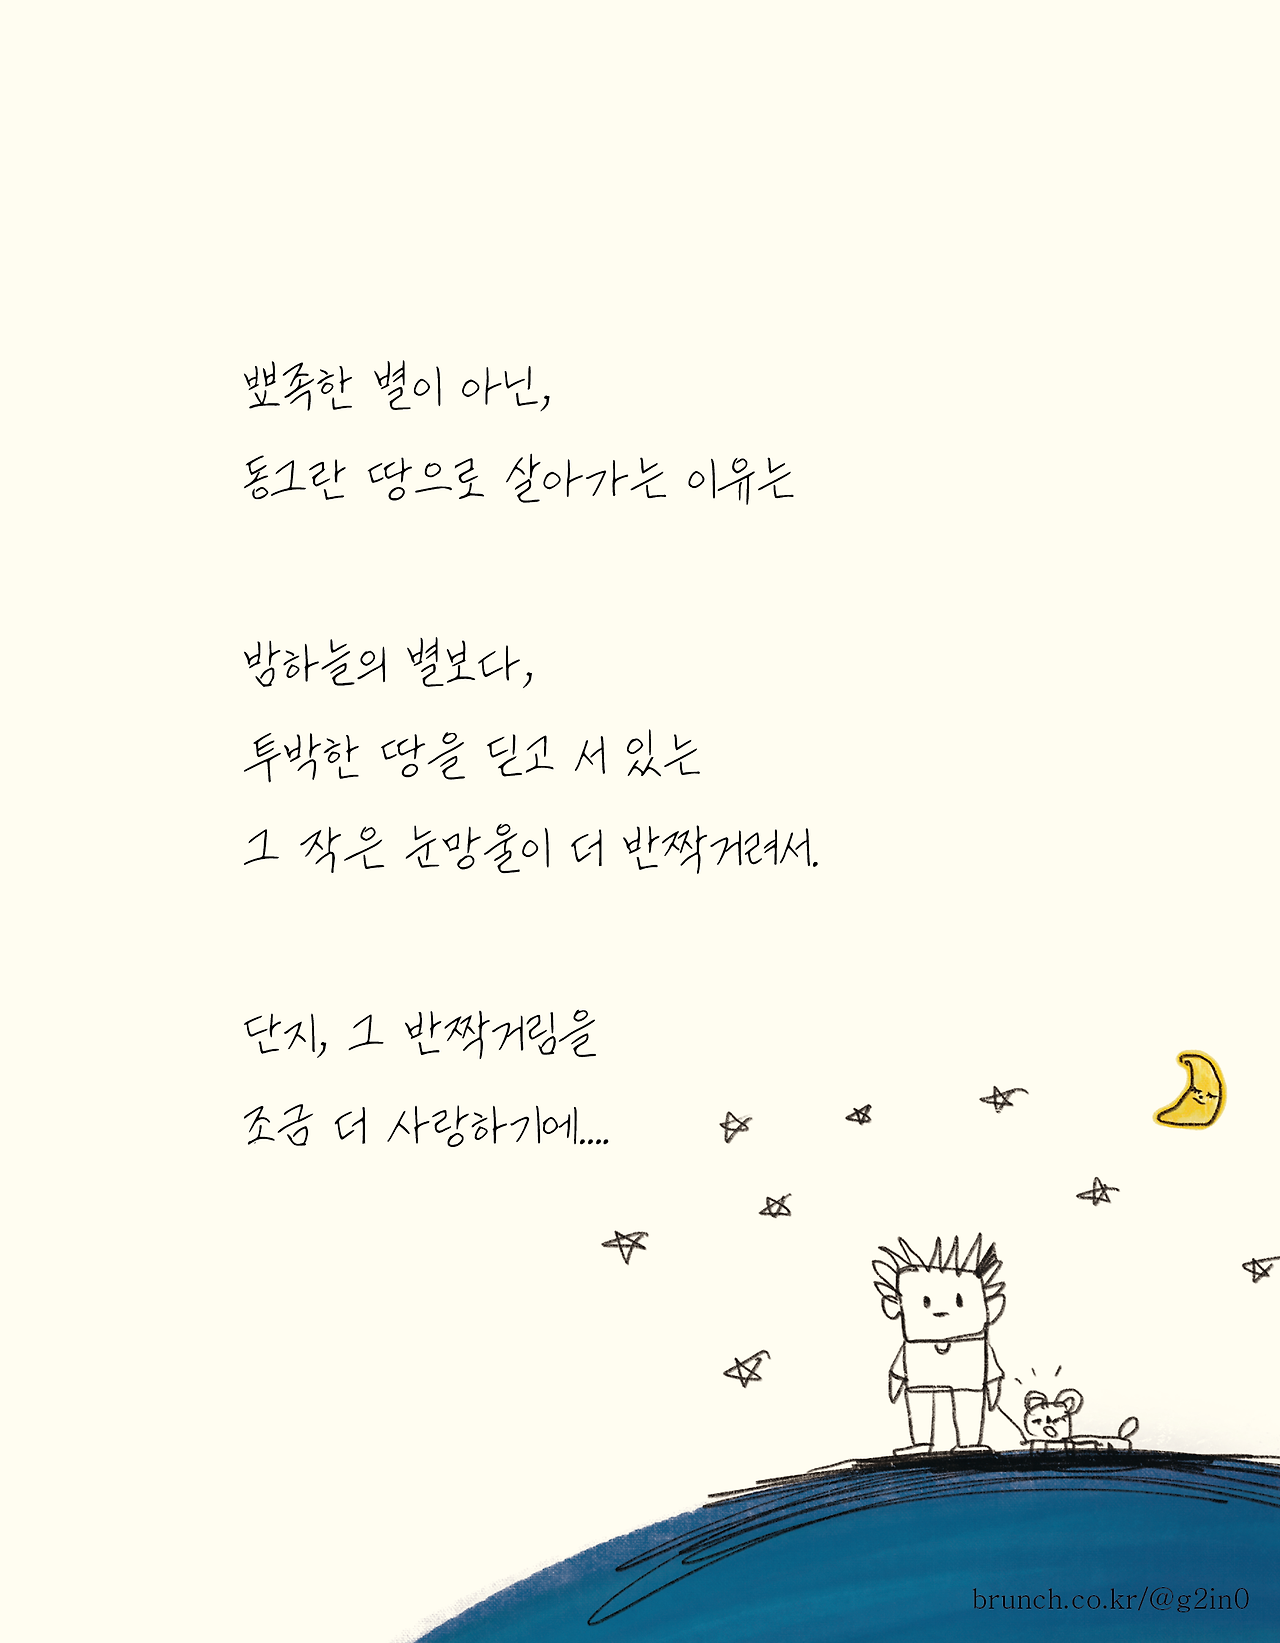 뾰족한 별이 아닌,
동그란 땅으로 살아가는 이유는
밤하늘의 별보다,
투박한 땅을 딛고 서 있는
그 작은 눈망울이 더 반짝거려서.
단지, 그 반짝거림을
조금 더 사랑하기에....
brunch.co.kr/@g2in0